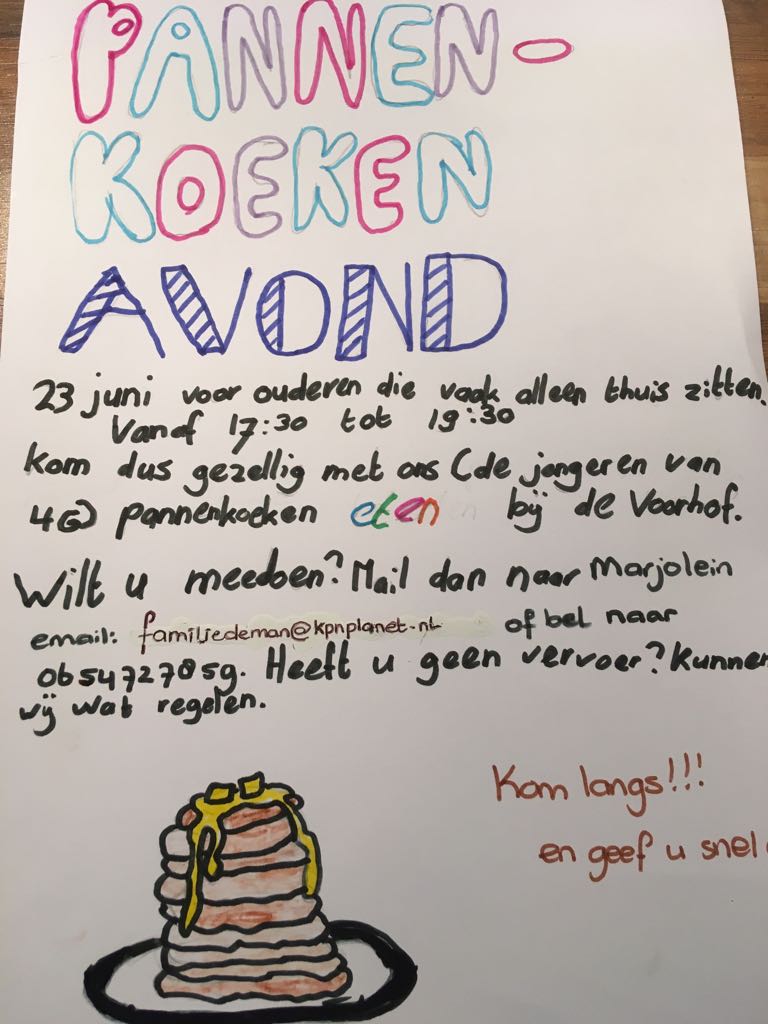 PANNEN-
KOEKEN
AVOND
23 juni voor ouderen die vaak alleen thuis zitten.
Vanaf 17:30 tot 19:30
kom dus gezellig met ons (de jongeren van
4G) pannenkoeken eten bij de Voorhof.
Wilt u meedoen? Mail dan naar Marjolein
email: familiedeman@kpnplanet.nl of bel naar
0654727859. Heeft u geen vervoer? Kunnen
wij wat regelen.
Kom langs!!!
en geef u snel